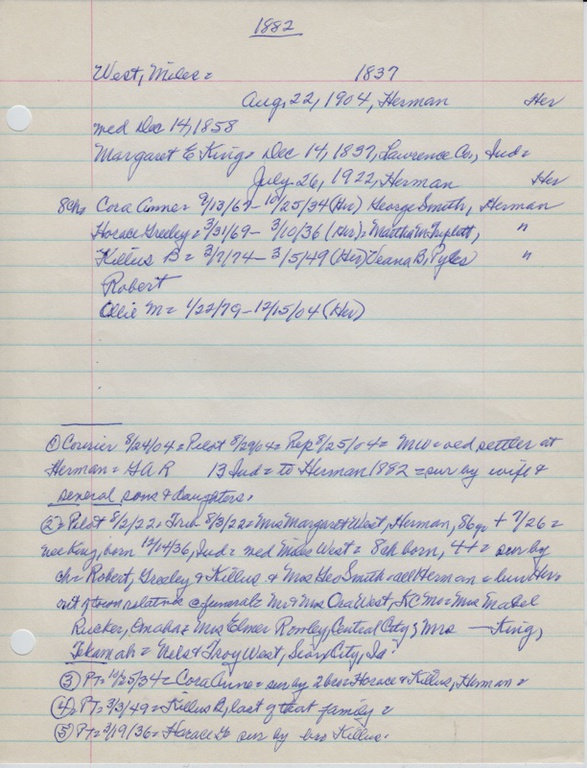 1882
West, Miles = 1837
Aug, 22, 1904, Herman Her
med Dec 14, 1858
Margaret E King = Dec 14, 1837, Lawrence Co., Ind =
July 26, 1922, Herman Her
8ch = Cora Anne = 9/13/67 - 10/25/34 (Her) George Smith, Herman
Horace Greeley = 3/31/69 - 3/10/36 (Her) = Martha M Triplett, "
Killus B = 3/7/74 - 3/5/49 (Her) Deana B, Pyles "
Robert
Ollie M = 1/22/79 - 12/15/04 (Her)
① Courier 8/24/04 = Pilot 8/29/04 = Rep 8/25/04 = MW = old settler at
Herman = GAR 13 Ind = to Herman 1882 = sur by wife &
several sons & daughters.
② = Pilot 8/2/22 = Trib 8/3/22 = Mrs Margaret West, Herman, 86 yr + 7/26 =
nee King, born 12/14/36, Ind = med Miles West = 8ch born, 4 + = sur by
ch = Robert, Greeley & Killus & Mrs Geo Smith = all Herman = bur Her =
out of town relatives @ funeral = Mr & Mrs Ora West, KC Mo = Mrs Mabel
Rucker, Omaha = Mrs Elmer Rowley, Central City; Mrs — King,
Tekamah = Nels & Troy West, Sioux City, Ia.
③ PT = 10/25/34 = Cora Anne = sur by 2 bros = Horace & Killus, Herman =
④ PT = 3/3/49 = Killus B, last of that family =
⑤ PT = 3/19/36 = Horace G sur by bro Killus.